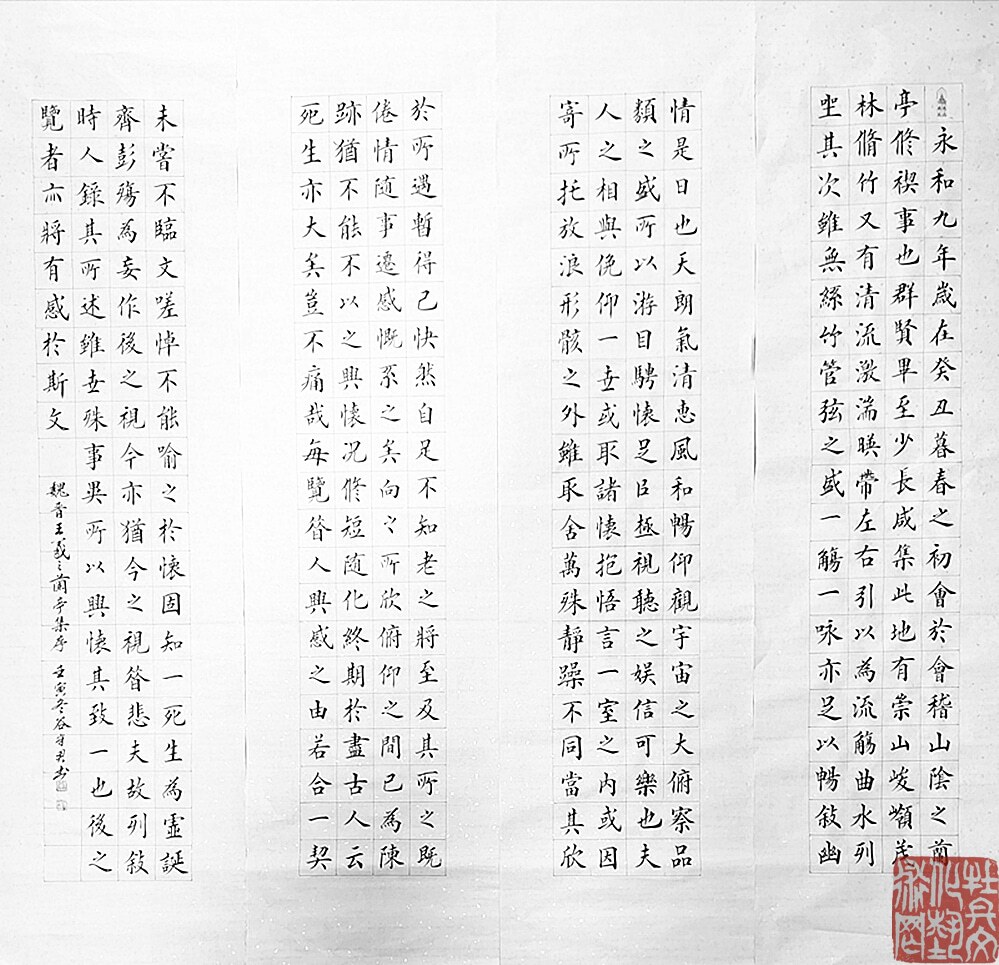 永和九年歲在癸丑暮春之初會於會稽山陰之蘭
亭修禊事也群賢畢至少長咸集此地有崇山峻嶺茂
林脩竹又有清流激湍暎帶左右引以為流觴曲水列
坐其次雖無絲竹管弦之盛一觴一咏亦足以暢敍幽
情是日也天朗氣清惠風和暢仰觀宇宙之大俯察品
類之盛所以游目騁懷足以極視聽之娛信可樂也夫
人之相與俛仰一世或取諸懷抱悟言一室之內或因
寄所托放浪形骸之外雖取舍萬殊靜躁不同當其欣
於所遇暫得己快然自足不知老之將至及其所之既
倦情隨事遷感慨系之矣向之所欣俯仰之間已為陳
跡猶不能不以之興懷况修短隨化終期於盡古人云
死生亦大矣豈不痛哉每覽昔人興感之由若合一契
未嘗不臨文嗟悼不能喻之於懷固知一死生為虛誕
齊彭殤為妄作後之視今亦猶今之視昔悲夫故列敍
時人錄其所述雖世殊事異所以興懷其致一也後之
覽者亦將有感於斯文
魏晉王羲之蘭亭集序 壬寅冬